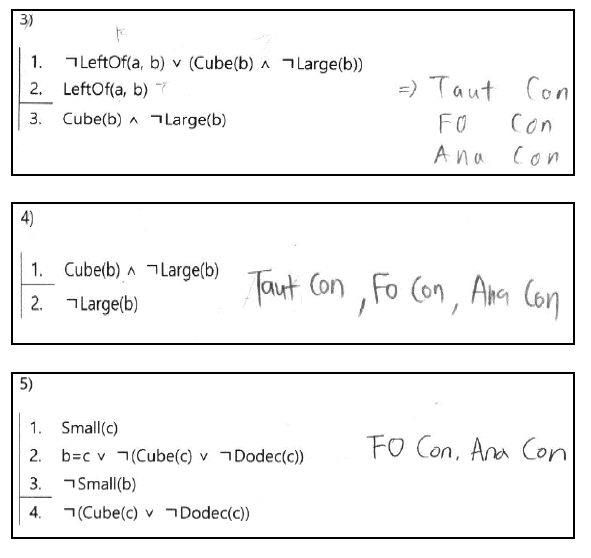 3)
1. ¬LeftOf(a, b) ∨ (Cube(b) ∧ ¬Large(b))
2. LeftOf(a, b)
3. Cube(b) ∧ ¬Large(b)
=> Taut Con
FO Con
Ana Con
4)
1. Cube(b) ∧ ¬Large(b)
2. ¬Large(b)
Taut Con, Fo Con, Ana Con
5)
1. Small(c)
2. b=c ∨ ¬(Cube(c) ∨ ¬Dodec(c))
3. ¬Small(b)
4. ¬(Cube(c) ∨ ¬Dodec(c))
FO Con, Ana Con